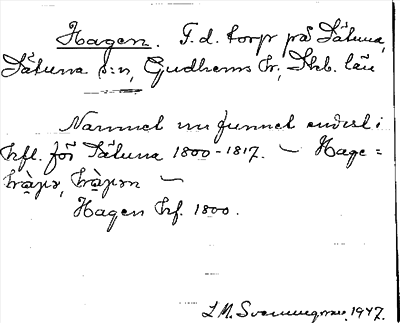 Hagen. F.d. torp på Sätuna,
Sätuna s:n, Gudhems hd, Skb. län
Namnet nu funnet endast i
hfl. för Sätuna 1800-1817. — Hage=
Hagen hf. 1800.
L.M. Svenungsson 1947.